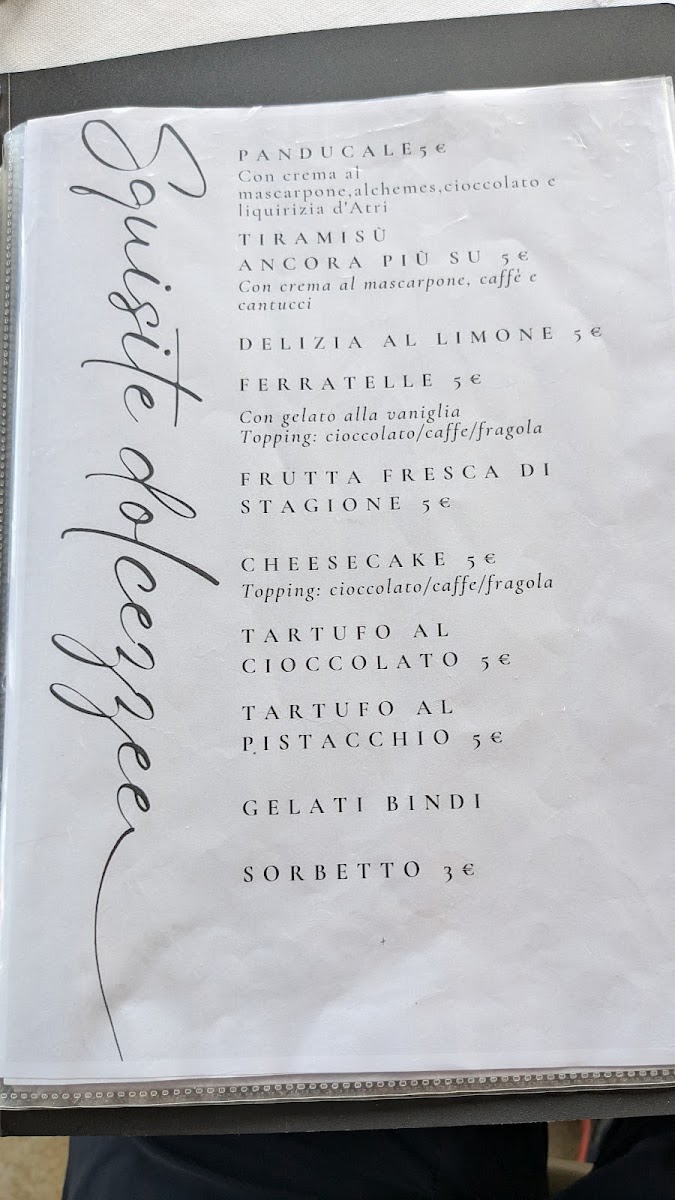 Squisite dolcezzee
PANDUCALE 5 €
Con crema al
mascarpone,alchemes,cioccolato e
liquirizia d'Atri
TIRAMISÙ
ANCORA PIÙ SU 5 €
Con crema al mascarpone, caffè e
cantucci
DELIZIA AL LIMONE 5 €
FERRATELLE 5 €
Con gelato alla vaniglia
Topping: cioccolato/caffe/fragola
FRUTTA FRESCA DI
STAGIONE 5 €
CHEESECAKE 5 €
Topping: cioccolato/caffe/fragola
TARTUFO AL
CIOCCOLATO 5 €
TARTUFO AL
PISTACCHIO 5 €
GELATI BINDI
SORBETTO 3 €